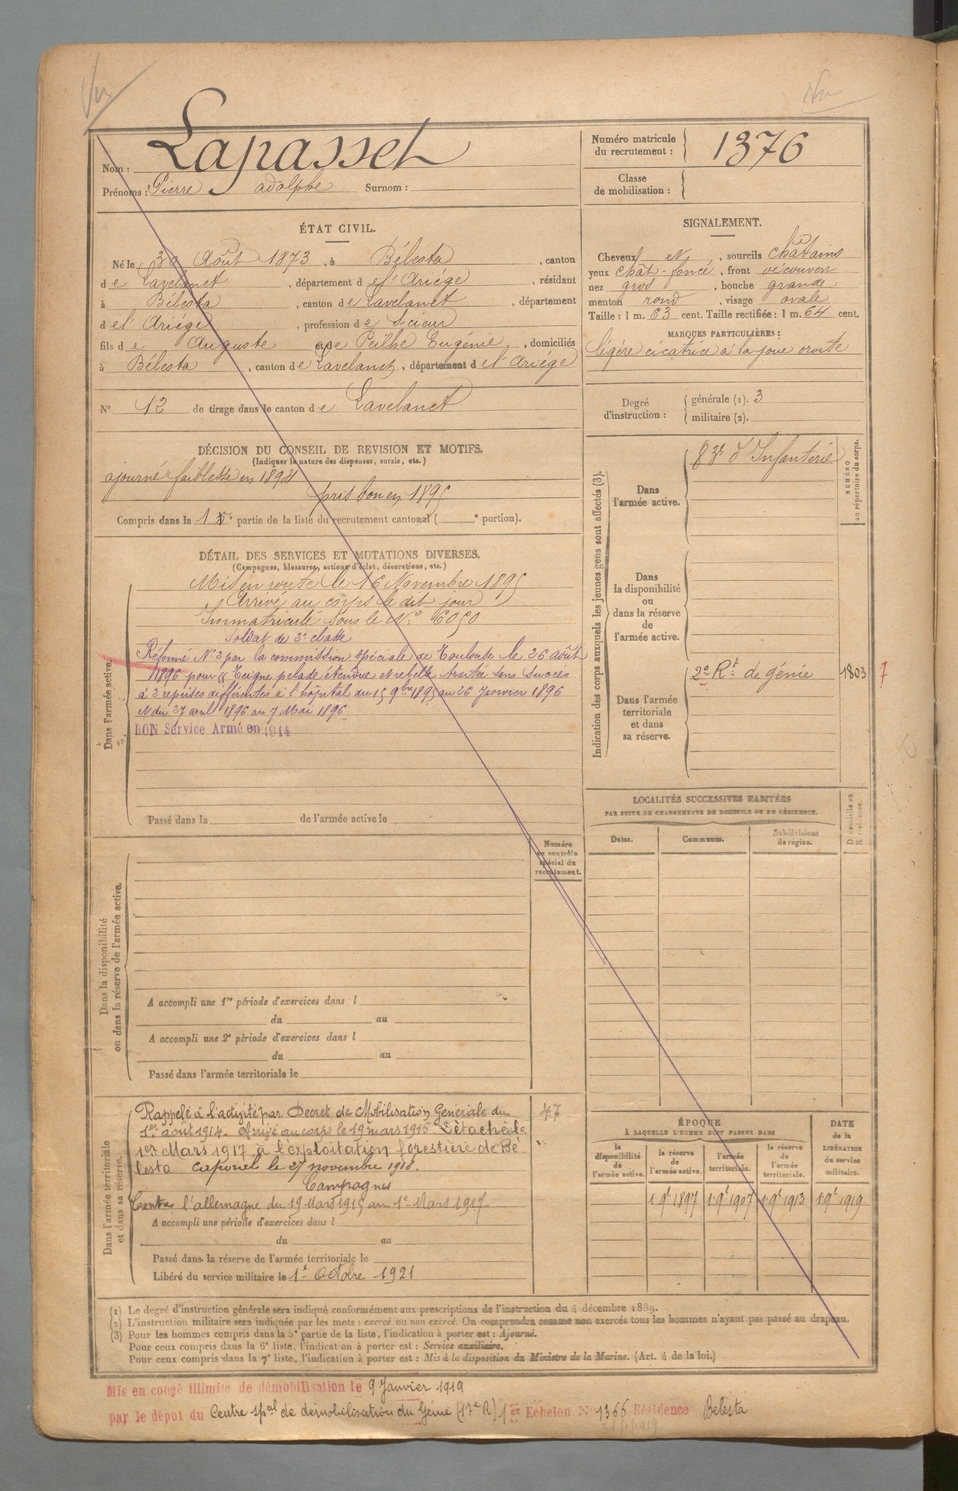 Vu
Vu
Nom : Lapasset
Prénoms : Pierre adolphe Surnom :
Numéro matricule du recrutement : 1376
Classe de mobilisation :
ÉTAT CIVIL.
Né le 30 Août 1873, à Bélesta, canton
de Lavelanet, département de l'Ariége, résidant
à Bélesta, canton de Lavelanet, département
de l'Ariége, profession de scieur
fils de Auguste et de Peilhe Eugénie, domiciliés
à Bélesta, canton de Lavelanet, département de l'Ariége
N° 12 de tirage dans le canton de Lavelanet
SIGNALEMENT.
Cheveux et, sourcils châtains
yeux chât-foncé, front découvert
nez gros, bouche grande
menton rond, visage ovale
Taille : 1 m. 63 cent. Taille rectifiée : 1 m. 64 cent.
MARQUES PARTICULIÈRES :
légère cicatrice à la joue droite
Degré d'instruction : générale (1). 3
militaire (2).
DÉCISION DU CONSEIL DE REVISION ET MOTIFS.
(Indiquer la nature des dispenses, sursis, etc.)
ajourné faiblesse en 1894
pris bon en 1895
Compris dans la 1e partie de la liste du recrutement cantonal ( e portion).
DÉTAIL DES SERVICES ET MUTATIONS DIVERSES.
(Campagnes, blessures, actions d'éclat, décorations, etc.)
Dans l'armée active.
Mis en route le 16 Novembre 1895
Arrivé au corps le dit jour
Immatriculé sous le N° 6050
Soldat de 2e classe
Réformé N° 2 par la commission spéciale de Toulouse le 26 août
1896 pour "Teigne pelade étendue et rebelle traitée sans succès
à 2 reprises différentes à l'hôpital du 15 9bre 1895 au 26 Janvier 1896
et du 27 avril 1896 au 7 Mai 1896.
BON Service Armé en 1914
Passé dans la de l'armée active le
Indication des corps auxquels les jeunes gens sont affectés (3).
NUMÉRO au répertoire du corps.
Dans l'armée active.
83e d'Infanterie
Dans la disponibilité ou dans la réserve de l'armée active.
Dans l'armée territoriale et dans sa réserve.
2e Rt de génie 1803 7
LOCALITÉS SUCCESSIVES HABITÉES
PAR SUITE DE CHANGEMENTS DE DOMICILE OU DE RÉSIDENCE.
Dates. Communes. Subdivisions de région.
Numéro au contrôle spécial du recrutement.
Dans la disponibilité ou dans la réserve de l'armée active.
A accompli une 1re période d'exercices dans l
du au
A accompli une 2e période d'exercices dans l
du au
Passé dans l'armée territoriale le
Dans l'armée territoriale et dans sa réserve.
Rappelé à l'activité par Décret de Mobilisation Générale du
1er août 1914. Arrivé au corps le 19 mars 1915 Détaché le
1er Mars 1917 à l'exploitation forestière de Bé
lesta Caporal le 27 novembre 1918.
Campagnes
Contre l'allemagne du 19 Mars 1915 au 1er Mars 1917
47
A accompli une période d'exercices dans l
du au
Passé dans la réserve de l'armée territoriale le
Libéré du service militaire le 1er octobre 1921
ÉPOQUE
À LAQUELLE L'HOMME DOIT PASSER DANS
DATE de la LIBÉRATION du service militaire.
la disponibilité de l'armée active. la réserve de l'armée active. l'armée territoriale. la réserve de l'armée territoriale.
1 9e 1897 1 9e 1907 1 9e 1913 1 9e 1919
(1) Le degré d'instruction générale sera indiqué conformément aux prescriptions de l'instruction du 4 décembre 1889.
(2) L'instruction militaire sera indiquée par les mots : exercé ou non exercé. On comprendra comme non exercés tous les hommes n'ayant pas passé au drapeau.
(3) Pour les hommes compris dans la 5e partie de la liste, l'indication à porter est : Ajourné.
Pour ceux compris dans la 6e liste, l'indication à porter est : Service auxiliaire.
Pour ceux compris dans la 7e liste, l'indication à porter est : Mis à la disposition du Ministre de la Marine. (Art. 4 de la loi.)
Mis en congé illimité de démobilisation le 9 Janvier 1919
par le dépot du Centre spal de démobilisation du Génie (17e R) 1er Echelon N° 1366 Résidence Bélesta